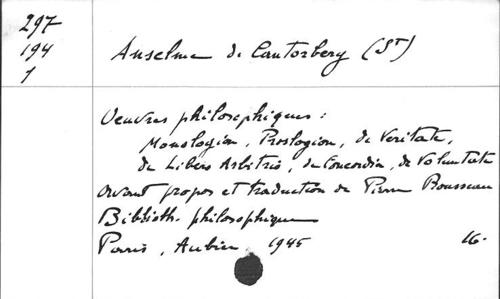 297
194
1
Anselme de Cantorbery (St)
Oeuvres philosophiques :
Monologion, Proslogion, de Veritate,
de Libero Arbitrio, de Concordia, de Voluntate
avant propos et traduction de Pierre Rousseau
Biblioth. philosophique
Paris, Aubier 1945 16.